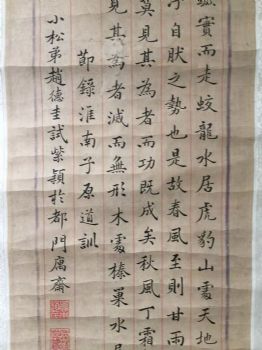 實而走蛟龍水居虎豹山處天地
自狀之勢也是故春風至則甘雨
莫見其為者而功既成矣秋風下霜
見其為者滅而無形木處榛巢水居
節錄淮南子原道訓
小松弟趙德圭試紫穎於都門庽齋